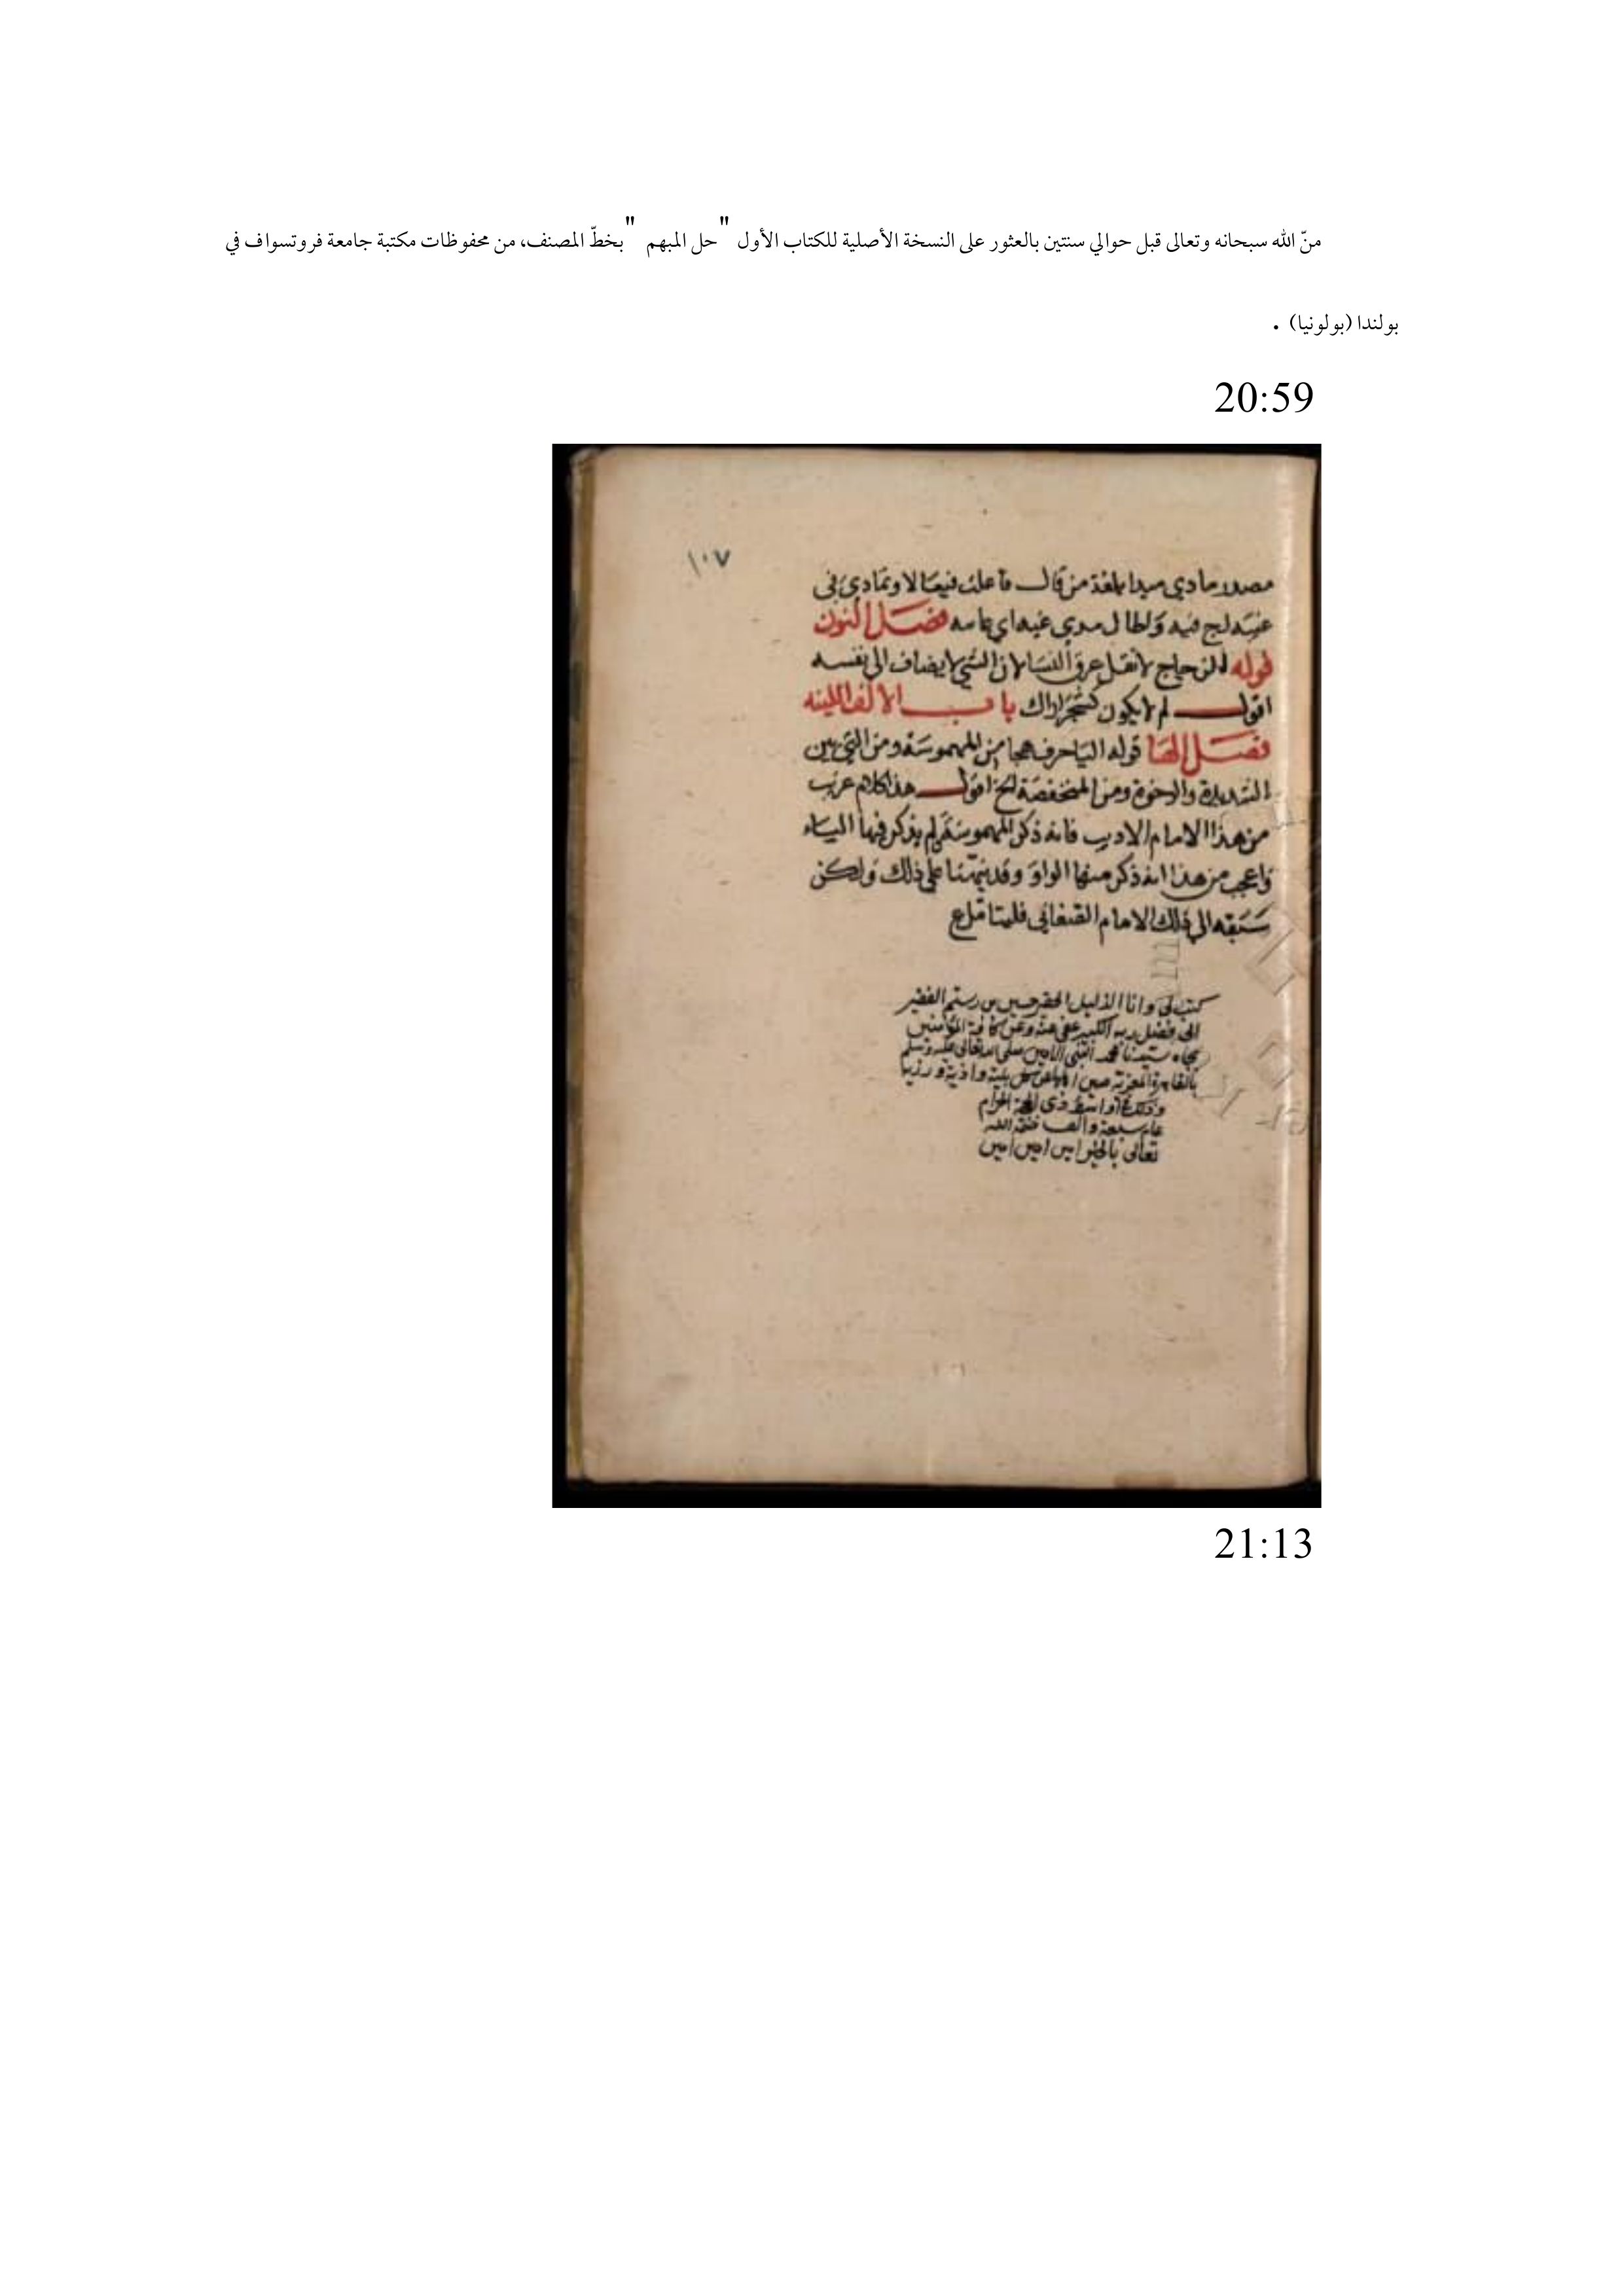 منّ الله سبحانه وتعالى قبل حوالي سنتين بالعثور على النسخة الأصلية للكتاب الأول "حل المبهم" بخطّ المصنف، من محفوظات مكتبة جامعة فروتسواف في
بولندا (بولونيا) .
20:59
١٠٧
مصدر مادي ميدا بلغة من قال فاعلت فيعالا وتمادي في
غيه لج فيه وطال مدى غيه اي فصل النون
قوله الزجاج لا تقل عرق النسا لان الشي لا يضاف الى نفسه
اقول لم لا يكون كشجر اراك باب الالف اللينه
فصل الها قوله اليا حرف هجا من المهموسة ومن التي بين
الشديدة والرخوة ومن المنخفضة الخ اقول هذا كلام
من هذا الامام الاديب فانه ذكر المهموسة ولم يذكر فيها الياء
واعجب من هذا انه ذكر منها الواو وقد نبهنا على ذلك ولكن
سبقه الى ذلك الامام الصغاني
وانا الذليل الحقير حسين بن رستم الفقير
الى فضل ربه الكبير عفى عنه وعن كافة المؤمنين
بجاه سيدنا محمد النبي الامين صلى الله تعالى عليه وسلم
بالقاهرة المعزية عن كل بلية واذية ورزيا
وذلك في اواسط ذي الحجة الحرام
عام سبعة والف ختم الله
تعالى بالخير امين امين امين
21:13